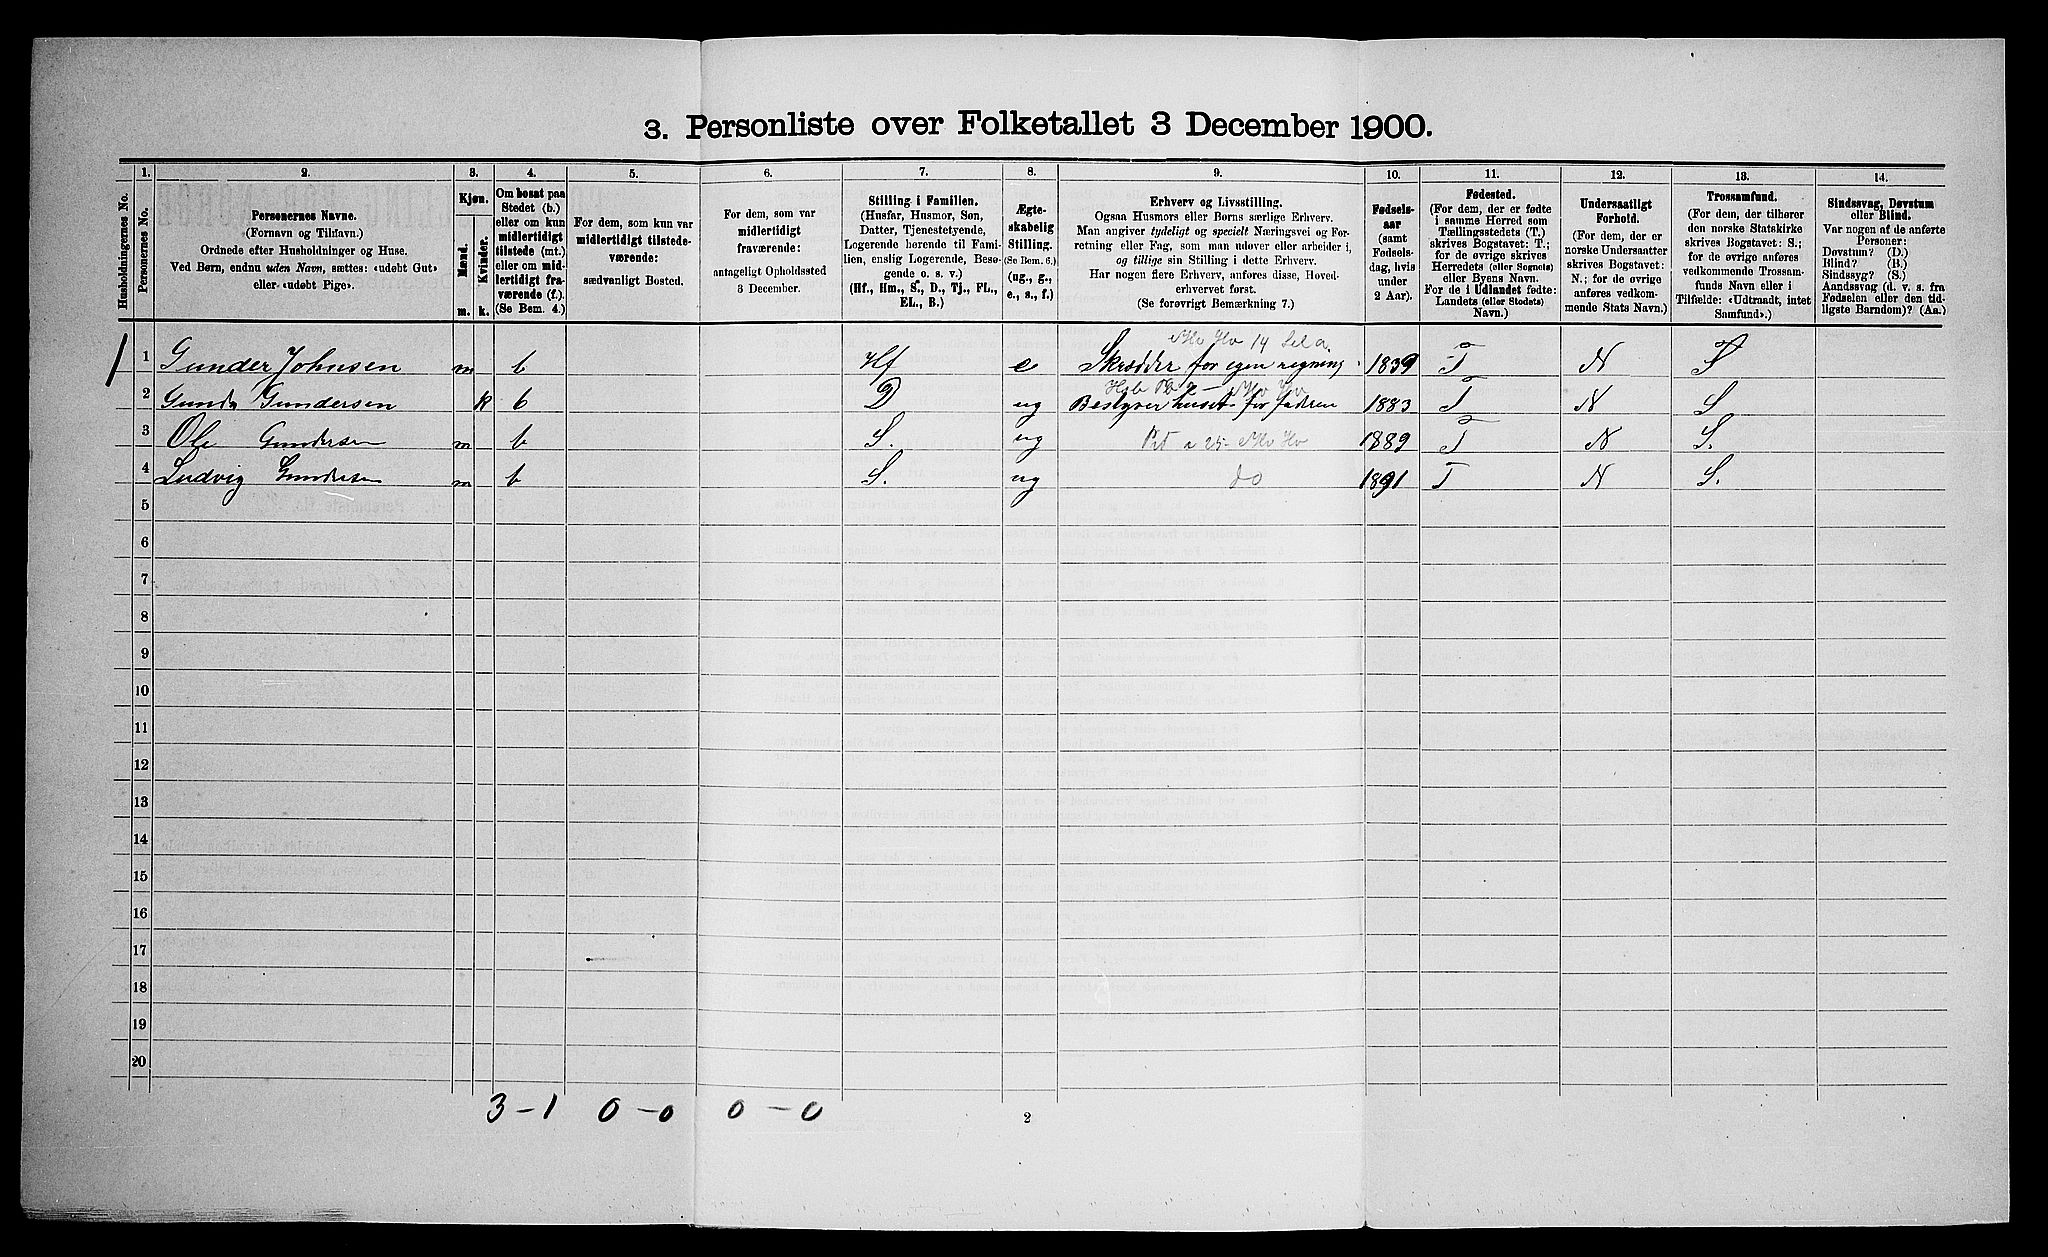 3. Personliste over Folketallet 3 December 1900.
Husholdningernes No.
1.
Personernes No.
2.
Personernes Navne.
(Fornavn og Tilnavn.)
Ordnede efter Husholdninger og Huse.
Ved Børn, endnu uden Navn, sættes: «udøbt Gut»
eller «udøbt Pige».
3.
Kjøn.
Mænd.
Kvinder.
m. k.
4.
Om bosat paa
Stedet (b.)
eller om kun
midlertidigt
tilstede (mt.)
eller om mid-
lertidigt fra-
værende (f.).
(Se Bem. 4.)
5.
For dem, som kun var
midlertidigt tilstede-
værende:
sædvanligt Bosted.
6.
For dem, som var
midlertidigt
fraværende:
antageligt Opholdssted
3 December.
7.
Stilling i Familien.
(Husfar, Husmor, Søn,
Datter, Tjenestetyende,
Logerende hørende til Fami-
lien, enslig Logerende, Besø-
gende o. s. v.)
(Hf., Hm., S., D., Tj., FL.,
EL., B.)
8.
Ægte-
skabelig
Stilling.
(Se Bem. 6.)
(ug., g.,
e., s., f.)
9.
Erhverv og Livsstilling.
Ogsaa Husmors eller Børns særlige Erhverv.
Man angiver tydeligt og specielt Næringsvei og For-
retning eller Fag, som man udøver eller arbeider i,
og tillige sin Stilling i dette Erhverv.
Har nogen flere Erhverv, anføres disse, Hoved-
erhvervet først.
(Se forøvrigt Bemærkning 7.)
10.
Fødsels-
aar
(samt
Fødsels-
dag, hvis
under
2 Aar).
11.
Fødested.
(For dem, der er fødte
i samme Herred som
Tællingsstedets (T.)
skrives Bogstavet: T.;
for de øvrige skrives
Herredets (eller Sognets)
eller Byens Navn.
For de i Udlandet fødte:
Landets (eller Stedets)
Navn.)
12.
Undersaatligt
Forhold.
(For dem, der er
norske Undersaatter
skrives Bogstavet:
N.; for de øvrige
anføres vedkom-
mende Stats Navn.)
13.
Trossamfund.
(For dem, der tilhører
den norske Statskirke
skrives Bogstavet: S.;
for de øvrige anføres
vedkommende Trossam-
funds Navn eller i
Tilfælde: «Udtraadt, intet
Samfund».)
14.
Sindssvag, Døvstum
eller Blind.
Var nogen af de anførte
Personer:
Døvstum? (D.)
Blind? (B.)
Sindssyg? (S.)
Aandssvag (d. v. s. fra
Fødselen eller den tid-
ligste Barndom)? (Aa.)
1 1 Gunder Johnsen m b Hf e Skrædder for egen regning 1839 T N S
2 Gunda Gundersen k b D ug Bestyrer huset for faderen 1883 T N S
3 Ole Gundersen m b S. ug 1889 T N S.
4 Ludvig Gundersen m b S. ug do 1891 T N S.
5
6
7
8
9
10
11
12
13
14
15
16
17
18
19
20
3 - 1 0 - 0 0 - 0
2